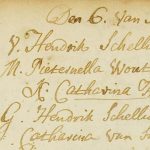 Den 6. Van
V. Hendrik Schellu
M. Pieternella Wout
K. Catharina
G. Hendrik Schellu
Catharina van